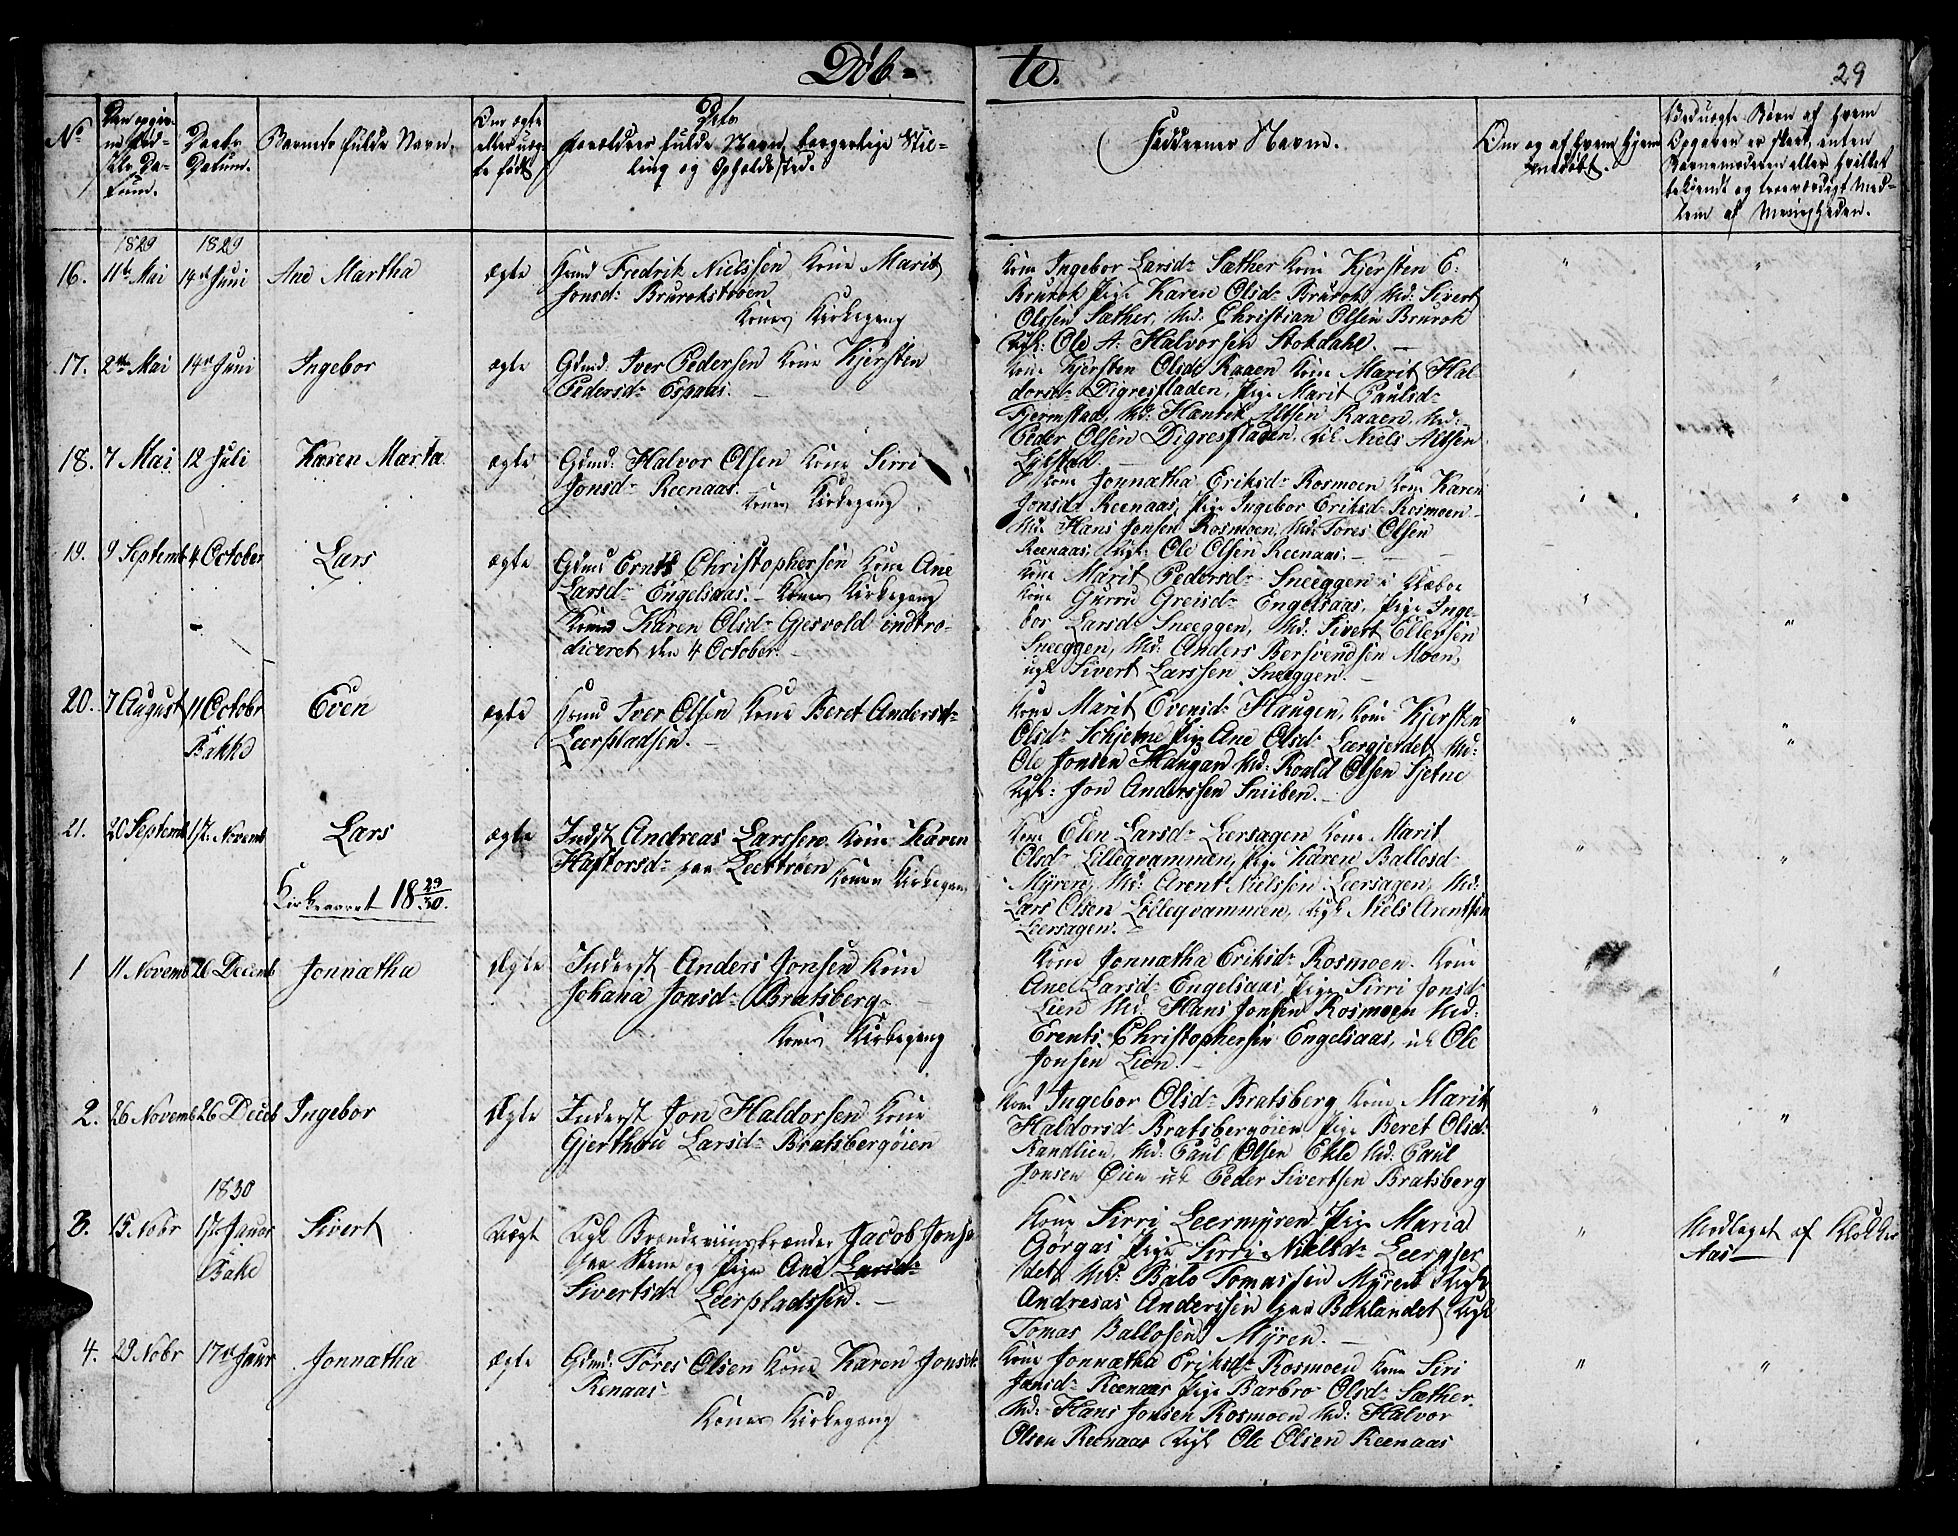 Døb-
te.
29
No
Den opgiv-
ne Fød-
sels Da-
tum.
Daabs
Datum.
Barnets fulde Navn.
Om ægte
eller uæg-
te født
Dets
Forældres fulde Navn, borgerlige Stil-
ling og Opholdssted.
Faddernes Navne.
Om og af hvem hjem-
medøbt.
Ved uægte Børn af hvem
Opgaven er skeet, enten
Barnemoderen eller hvilket
bekiendt og troeværdigt Med-
lem af Menigheden.
1829
1829
16.
11te Mai
14de Juni
Ane Martha
ægte
Huusmd Fredrik Nielssen Kone Marit
Jonsd: Brurokstrøen
Konens Kirkegang
Kone Ingebor Larsd: Sæther Kone Kjersten E:
Brurok Pige Karen Olsd: Brurok, Md: Sivert
Olssen Sæther, Md: Christian Olsen Brurok
Ugk: Ole A: Halvorsen Stokdahl.
17.
2den Mai
14de Juni
Ingebor
ægte
Gdmd: Iver Pedersen Kone Kjersten
Pedersd: Espaas.
Kone Kjersten Olsd: Raaen Kone Marit Hal-
dorsd: Digresfladen, Pige Marit Paulsd:
Tjermstad, Md: Henrik Altsen Raaen, Md:
Peder Olsen Digresfladen, Uk: Niels Altsen
18.
7 Mai
12 Juli
Karen Marta
ægte
Gdmd: Halvor Olsen Kone Sirri
Jonsd: Reenaas.
Konens Kirkegang
Kone Jonnatha Eriksd: Rosmoen Kone Karen
Jonsd: Reenaas, Pige Ingebor Eriksd: Rosmoen
Md: Hans Jonsen Rosmoen, Md: Tores Olsen
Reenaas. Ugk: Ole Olsen Reenaas.
19.
9 Septemb
4 October
Lars
ægte
Gdmd Ernts Christophersen Kone Ane
Larsd: Engelsaas. Konens Kirkegang
Kone Karen Olsd: Gjesvold indtro-
duceret den 4 October.
Kone Marit Pedersd: Sneeggen i Klæboe
Kone Gurru Greisd: Engelsaas, Pige Inge-
bor Larsd: Sneeggen, Md: Sivert Ellevsen
Sneeggen, Md: Anders Bersvendsen Moen,
ugk Sivert Larssen Sneeggen.
20.
7 August
11 Octobr
Bakke
Even
ægte
Huusmd Iver Olsen Kone Beret Andersd:
Leerpladsen.
Kone Marit Evensd: Haugen, Kone Kjersten
Olsd: Schjetne Pige Ane Olsd: Leergjerdet Md:
Ole Jonsen Haugan Md: Roald Olsen Sjetne
Ugk: Jon Anderssen Sniiben.
21.
20 Septemb
1ste Novemb
Lars
ægte
Indst Andreas Larssen Kone Karen
Haftorsd: paa Leertrøen
Konens Kirkegang
Kone Elen Larsd: Leersagen Kone Marit
Olsd: Lillegvammen, Pige Karen Ballosd:
Myren, Md: Arent Nielssen Leersagen, Md:
Lars Olsen Lillegvammen, Ugk Niels Arentsen
Leersagen.
Kirkeaaret 18 29/30.
1
11 Novemb
26 Decemb
Jonnatha
Ægte
Inderst Anders Jonsen Kone
Johana Jonsd: Bratsberg
Konens Kirkegang
Kone Jonnatha Eriksd: Rosmoen. Kone
Ane Larsd: Engelsaas, Pige Sirri Jonsd:
Lien Md: Hans Jonsen Rosmoen Md:
Erents Christophersen Engelsaas, uk Ole
Jonsen Lien.
2.
26 Novemb
26 Decb
Ingebor
Ægte
Inderst Jon Haldorsen Kone
Gjerthru Larsd: Bratsbergøien
Kone Ingebor Olsd: Bratsberg Kone Marit
Haldorsd: Bratsbergøien Pige Beret Olsd:
Randlien, Md: Paul Olsen Ekle Md: Paul
Jonsen Øien uk Peder Sivertsen Bratsberg
1830
3.
15 Nobr
1ste Januar
Bakke
Sivert
Uægt
Ugk Brændeviinsbrænder Jacob Jonse
paa Stene og Pige Ane Larsd:
Sivertsd: Leerpladssen.
Kone Sirri Leermyren Pige Maria
Gørgas Pige Sirri Nielsd: Leergjer
det, Md: Balo Tomassen Myren Ugk
Andreas Anderssen paa Baklandet Ugk
Tomas Ballosen Myren.
Modtaget af Klokker
Aas
4.
29 Nobr
17de Januar
Jonnatha
ægte
Gdmd: Tøres Olsen Kone Karen Jonsd:
Renaas
Konens Kirkegang
Kone Jonnatha Eriksd: Rosmoen Kone Siri
Jonsd: Reenaas Pige Barbro Olsd: Sæther.
Md: Hans Jonsen Rosmoen Md: Halvor
Olsen Reenaas Ugk Ole Olsen Reenaas